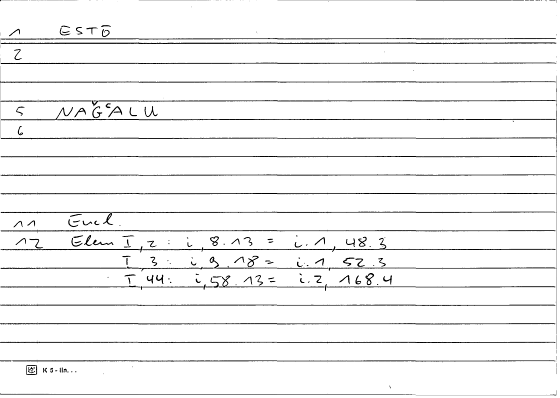 1 ESTŌ
2
5 NAǦʿALU
6
11 Eucl.
12 Elem I, 2 : i, 8.13 = i.1, 48.3
I, 3 : i, 9.18 = i.1, 52.3
I, 44 : i, 58.13 = i.2, 168.4
K 5 - lin. . .